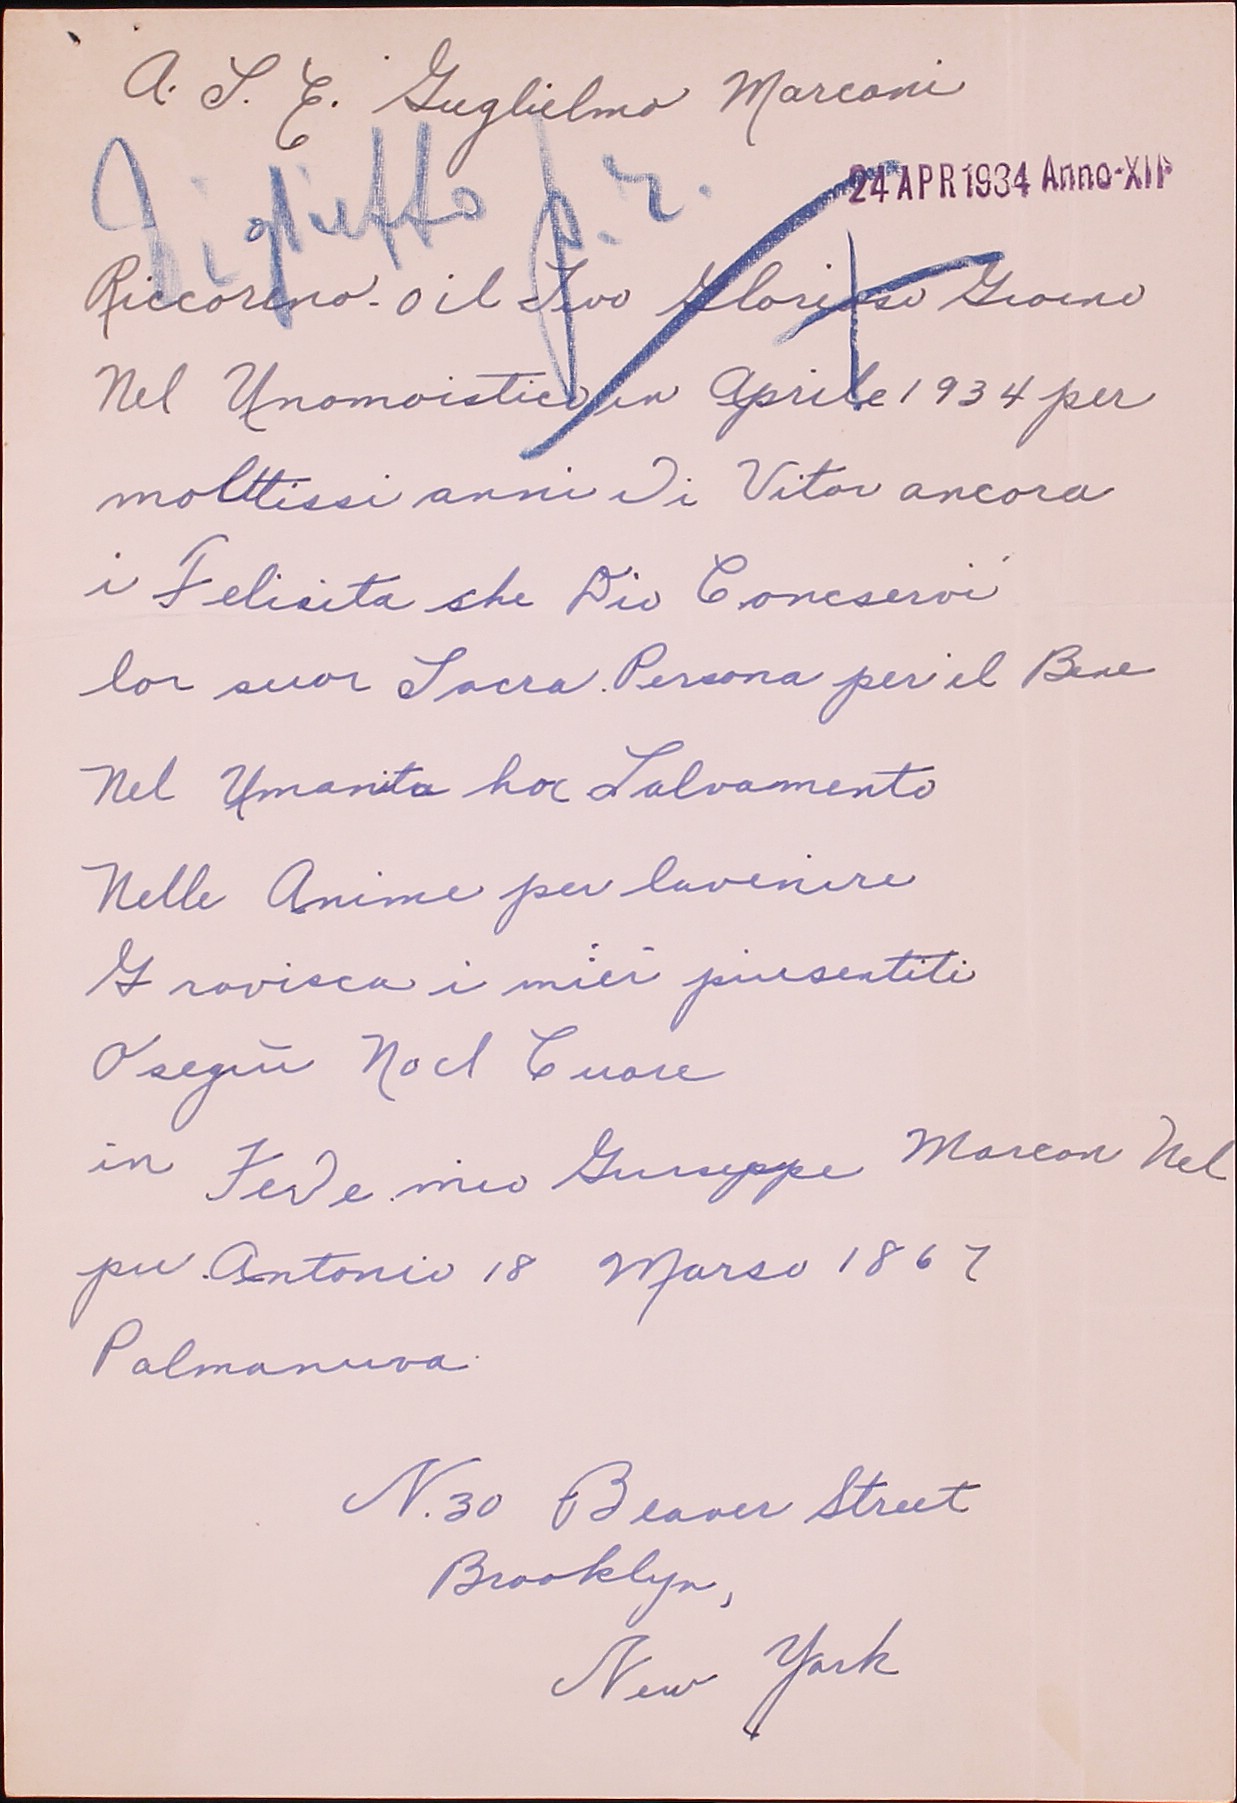 A. S. E. Guglielmo Marconi
Biglietto p. r.
24 APR 1934 Anno-XII
Riccoreno - o il Suo Glorioso Giorno
Nel Unomoistico in Aprile 1934 per
molttissi anni Di Vita ancora
i Felisita che Dio Concservi
la sua Sacra. Persona per il Bene
Nel Umanita ha Salvamento
Nelle Anime per lavenire
Gravisca i miei piusentiti
Osequi Nocl Cuore
in FeDe mio Guiseppe Marcon Nel
pu. Antonio 18 Marso 1867
Palmanuva
N. 30 Beaver Street
Brooklyn,
New York